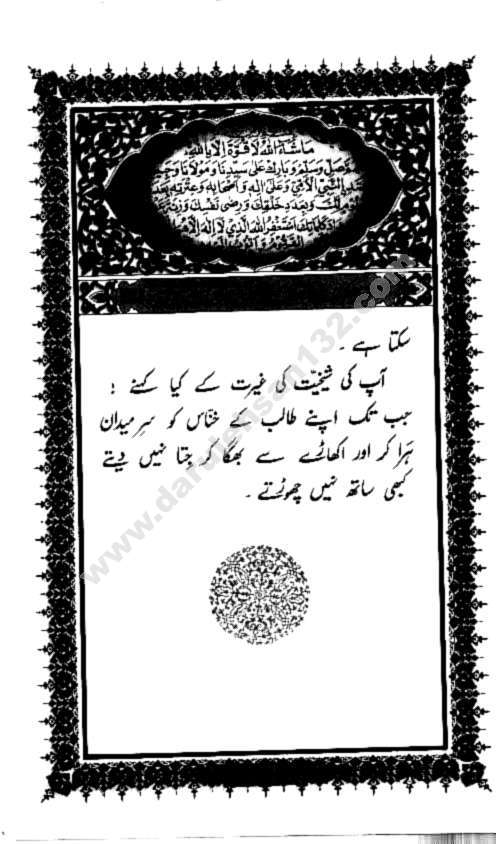 ماشاء الله لا قوة الا بالله
وصل وسلم وبارك على سيدنا ومولانا وحبيبنا
محمد النبي الامي وعلى اله واصحابه وعترته بعدد
كل معلوم لك وبعدد خلقك ورضى نفسك وزنة عرشك
ومداد كلماتك استغفر الله الذي لا اله الا هو
الحي القيوم واتوب اليه
سکتا ہے ۔
آپ کی شیخیّت کی غیرت کے کیا کہنے !
جب تک اپنے طالب کے خنّاس کو سرِ میدان
ہرا کر اور اکھاڑے سے بھگا کر جِتا نہیں دیتے
کبھی ساتھ نہیں چھوڑتے ۔
www.darulehsan132.com